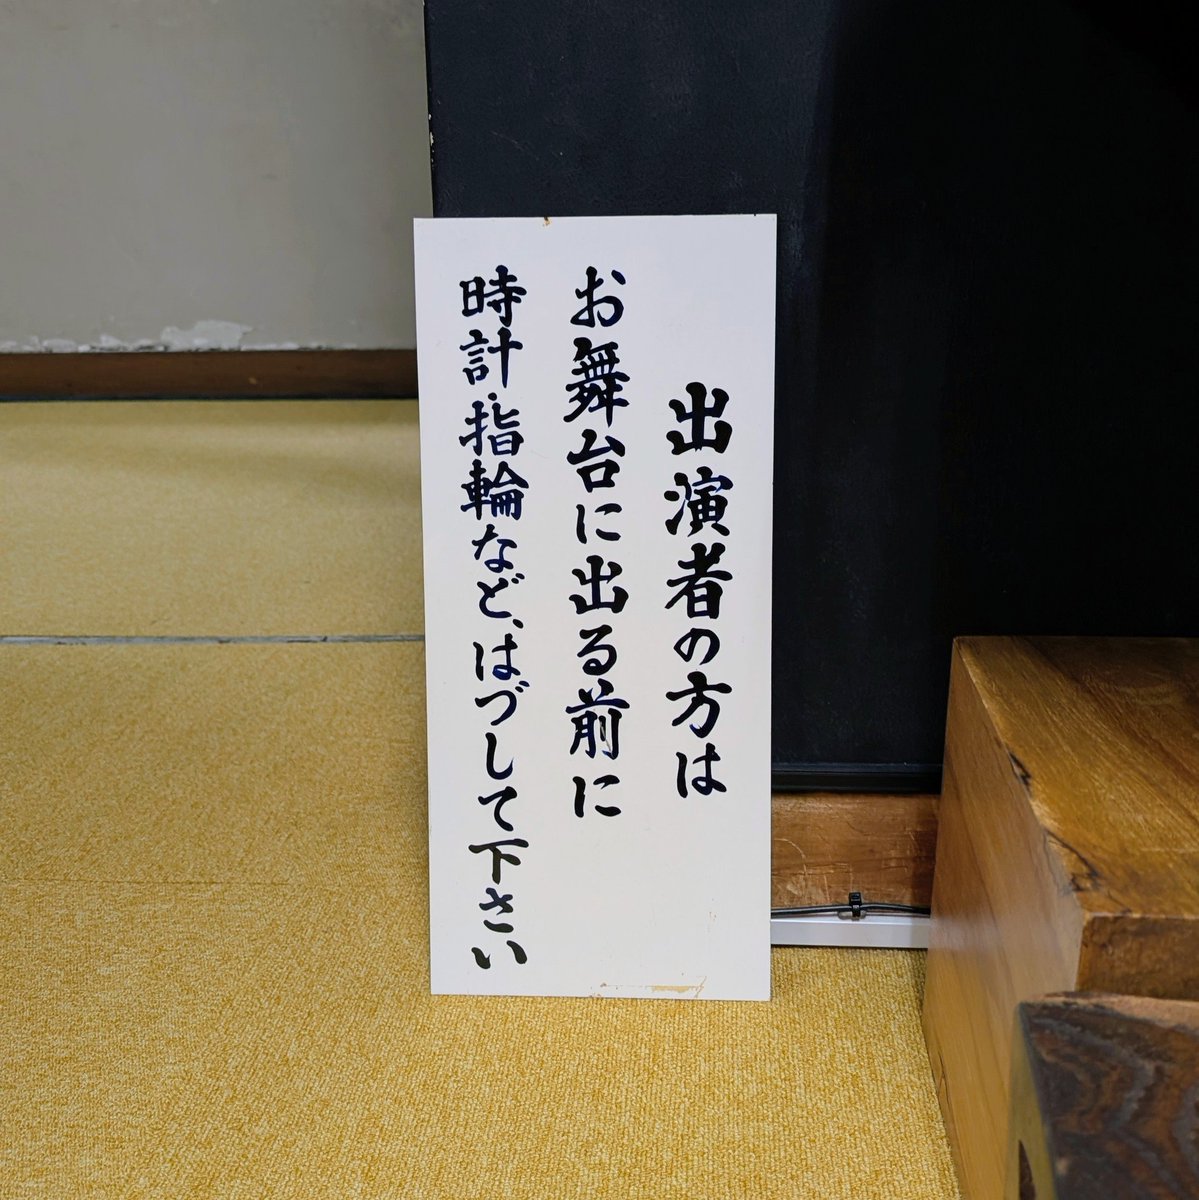 出演者の方は
お舞台に出る前に
時計・指輪など、はづして下さい